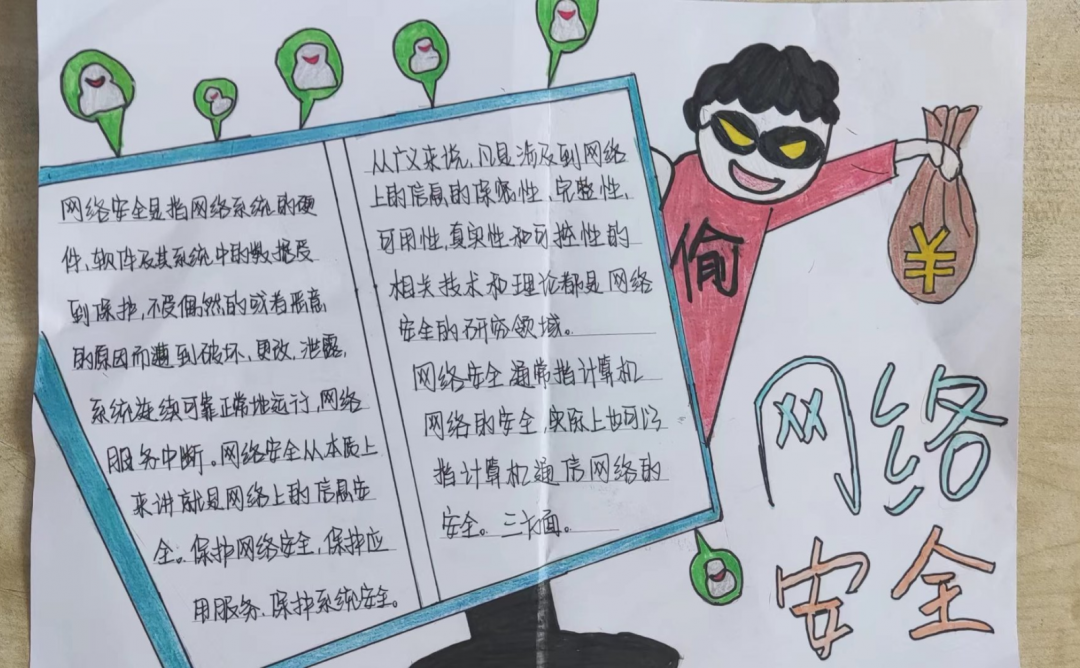 网络安全是指网络系统的硬
件、软件及其系统中的数据受
到保护，不受偶然的或者恶意
的原因而遭到破坏、更改、泄露，
系统连续可靠正常地运行，网络
服务中断。网络安全从本质上
来讲就是网络上的信息安
全。保护网络安全，保护应
用服务、保护系统安全。
从广义来说，凡是涉及到网络
上的信息的保密性、完整性、
可用性、真实性和可控性的
相关技术和理论都是网络
安全的研究领域。
网络安全通常指计算机
网络的安全，实际上也可以
指计算机通信网络的
安全。三方面。
偷
¥
网络
安全